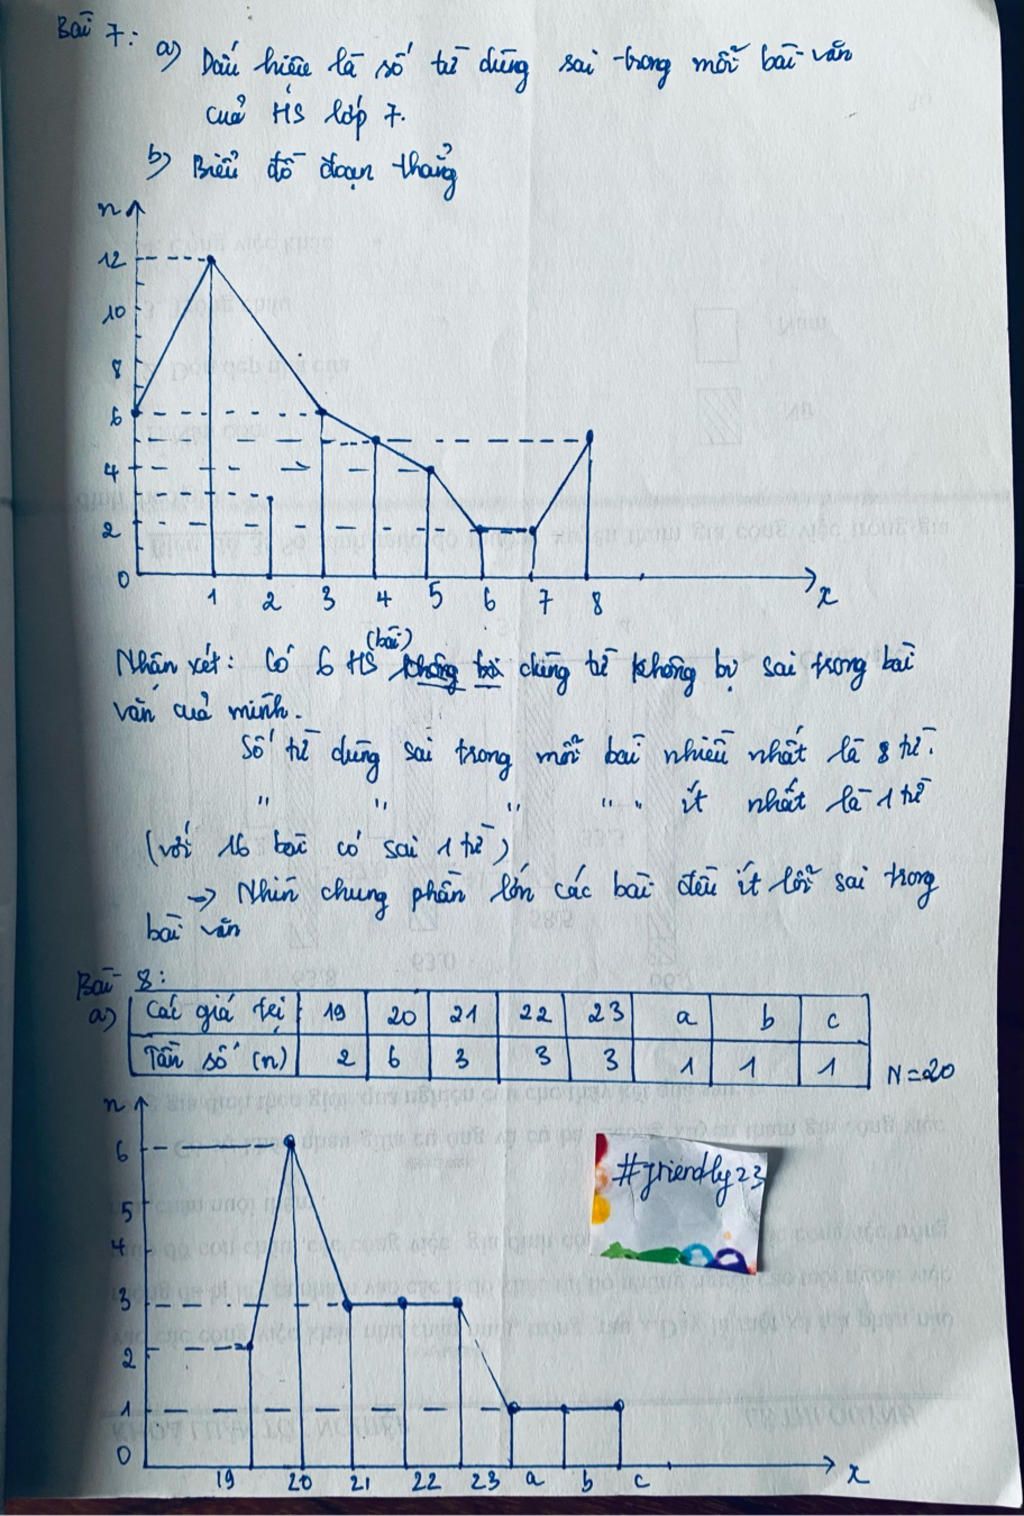 Bài 7:
a) Dấu hiệu là số từ dùng sai trong mỗi bài văn
của HS lớp 7.
b) Biểu đồ đoạn thẳng
n
12
10
8
6
4
2
0
1 2 3 4 5 6 7 8 x
(bài)
Nhận xét: Có 6 HS không bài dùng từ không bị sai trong bài
văn của mình.
Số từ dùng sai trong mỗi bài nhiều nhất là 8 từ.
" " " " " ít nhất là 1 từ
(với 16 bài có sai 1 từ)
→ Nhìn chung phần lớn các bài đều ít lỗi sai trong
bài văn
Bài 8:
a) Các giá trị 19 20 21 22 23 a b c
Tần số (n) 2 6 3 3 3 1 1 1 N=20
n
6
#friendly23
5
4
3
2
1
0
19 20 21 22 23 a b c x